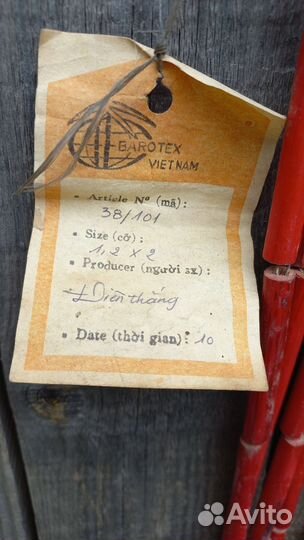 BAROTEX
VIETNAM
• Article Nº (mã) :
38/101
• Size (cỡ) :
1,2 x 2
• Producer (người sx) :
Điền thắng
• Date (thời gian) : 10
Avito